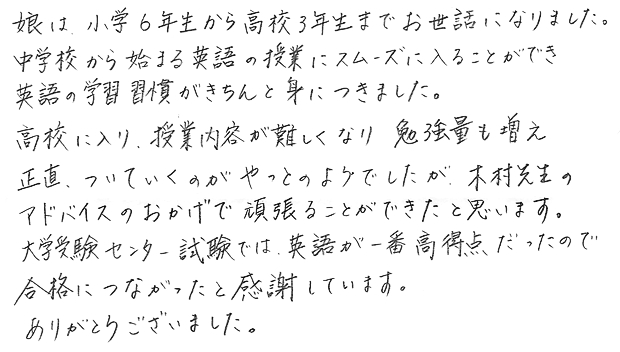 娘は、小学6年生から高校3年生までお世話になりました。
中学校から始まる英語の授業にスムーズに入ることができ
英語の学習習慣がきちんと身につきました。
高校に入り、授業内容が難しくなり 勉強量も増え
正直、ついていくのがやっとのようでしたが、木村先生の
アドバイスのおかげで頑張ることができたと思います。
大学受験センター試験では、英語が一番高得点だったので
合格につながったと感謝しています。
ありがとうございました。